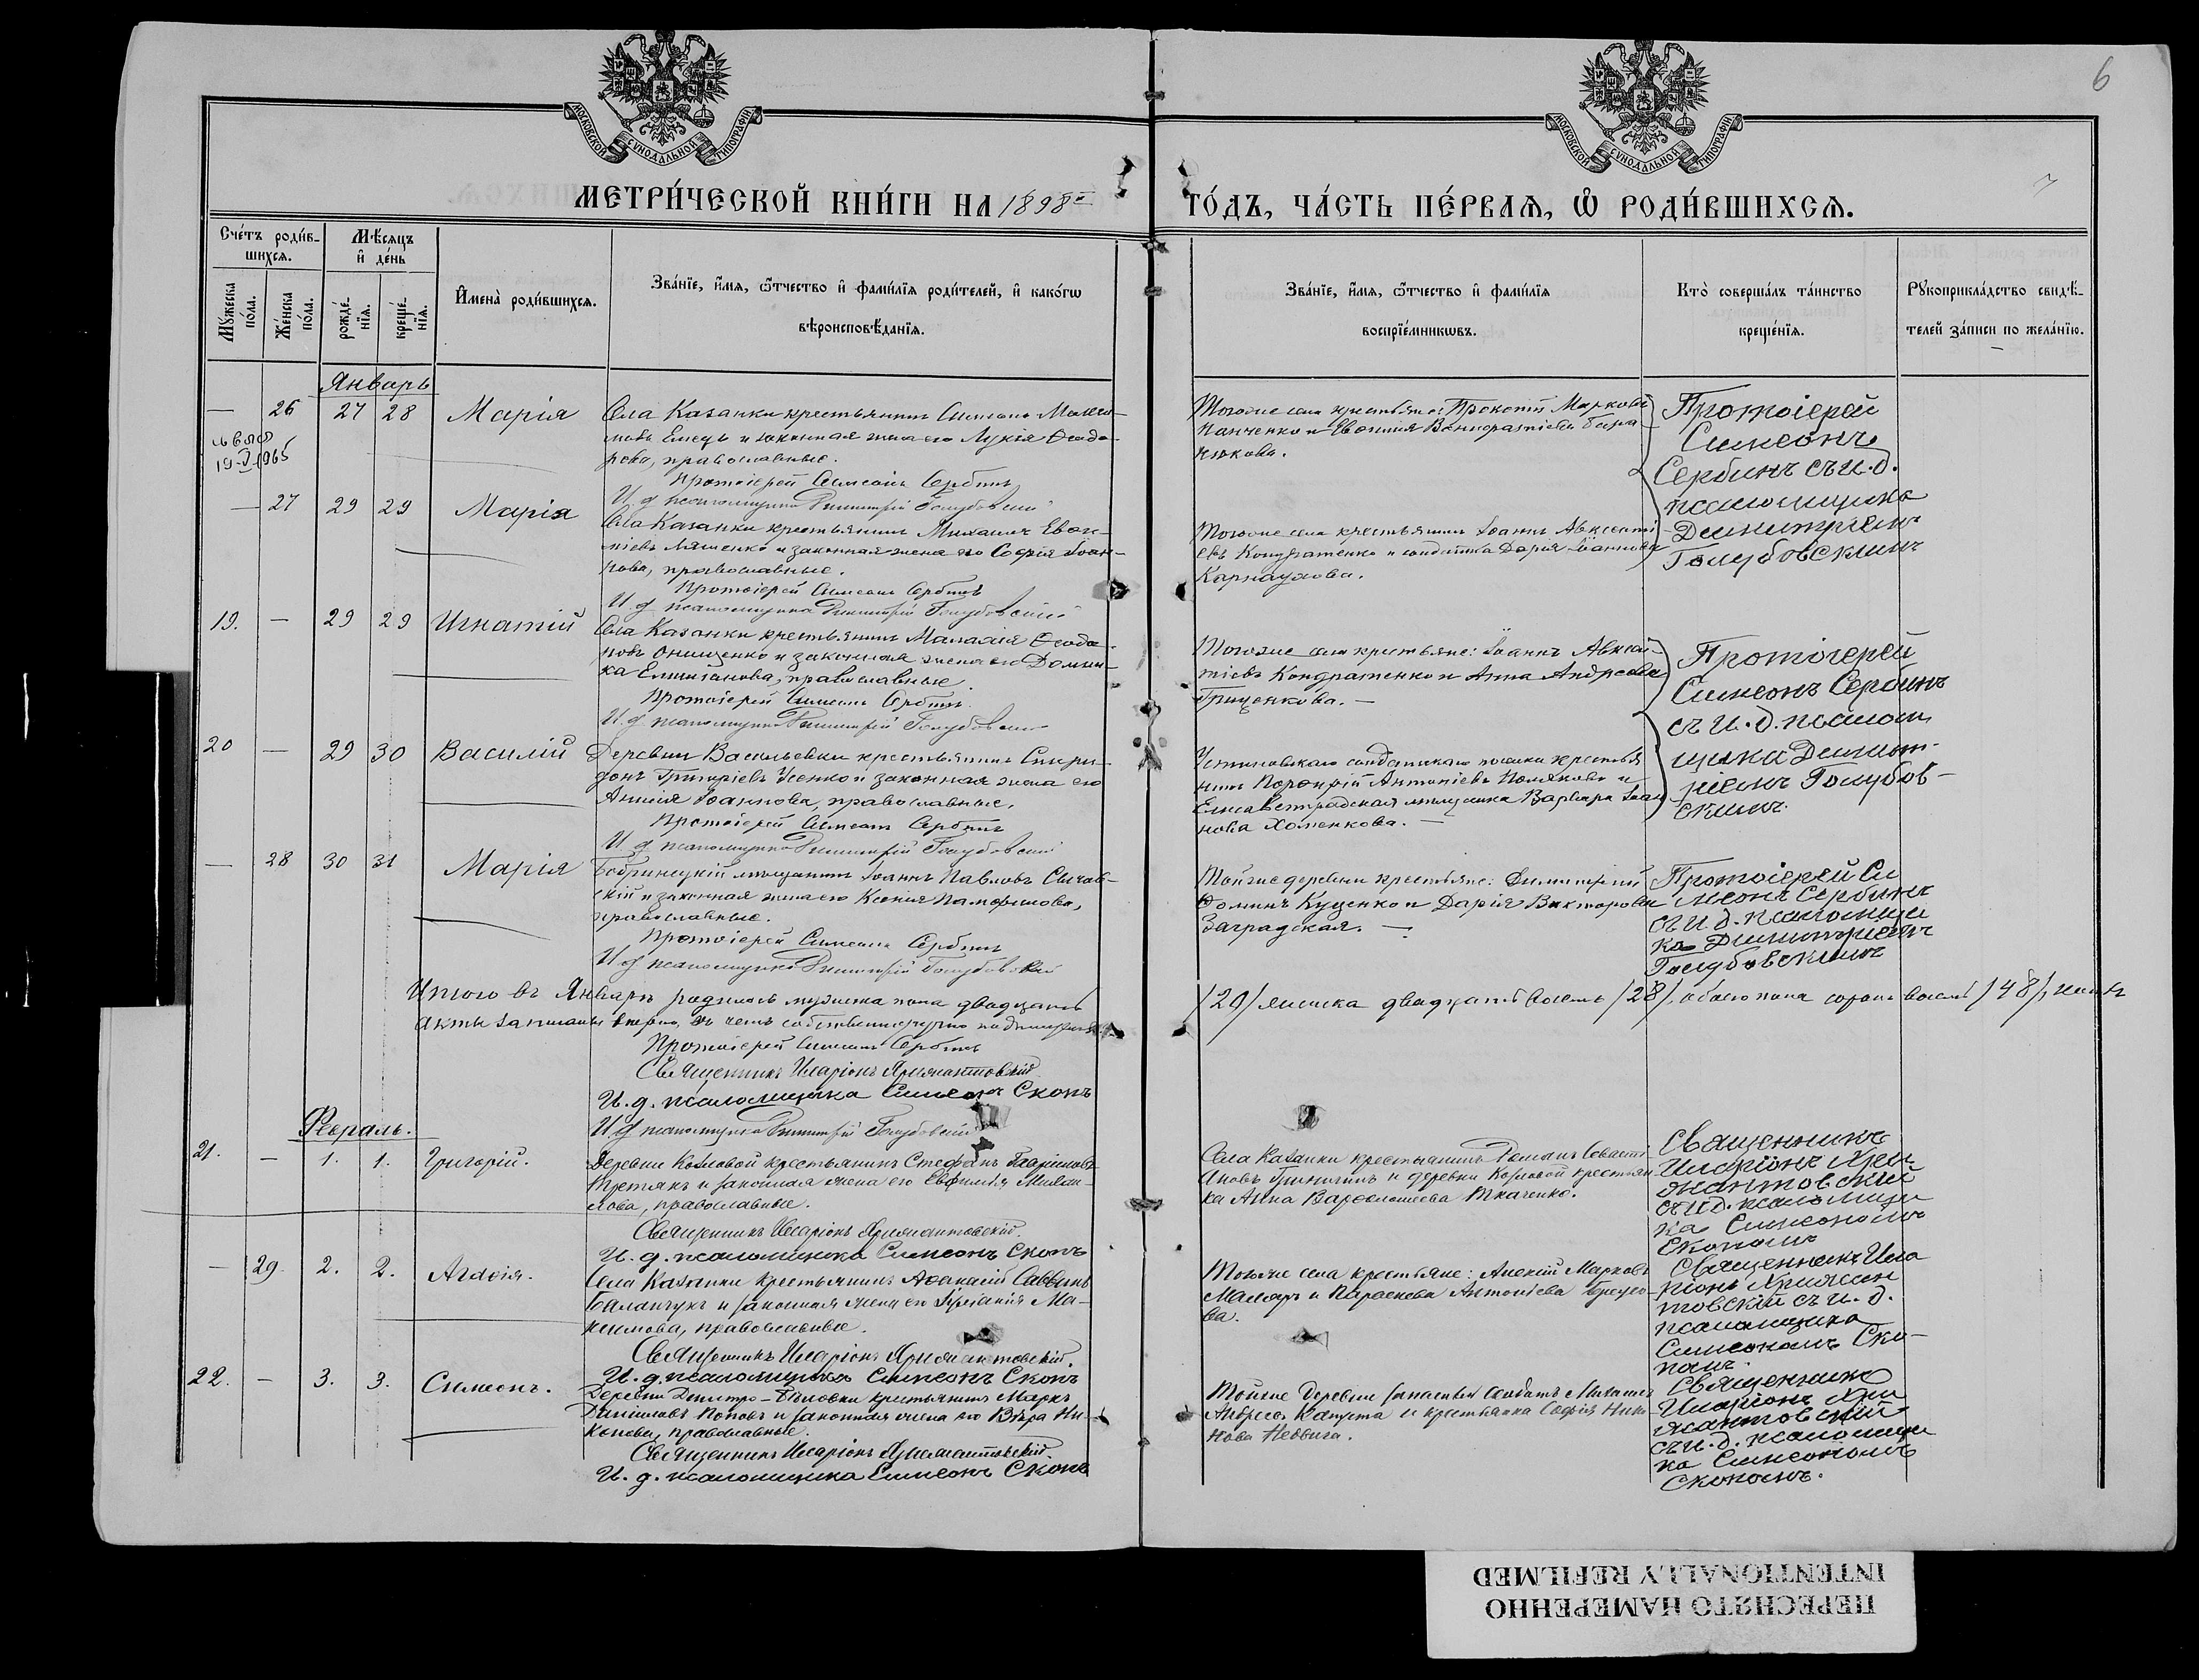 6
7
МОСКОВСКОЙ СѴНОДАЛЬНОЙ ТИПОГРАФІИ
МОСКОВСКОЙ СѴНОДАЛЬНОЙ ТИПОГРАФІИ
МЕТРИ́ЧЕСКОЙ КНИ́ГИ НА 1898й
ГО́ДЪ, ЧА́СТЬ ПЕ́РВАѦ, Ѡ РОДИ́ВШИХСѦ.
Сче́тъ роди́в-
шихсѧ.
Мѣ́сѧцъ
и де́нь
Мꙋ́жеска по́ла.
Же́нска по́ла.
рожде́нїѧ.
креще́нїѧ.
Имена̀ роди́вшихсѧ.
Зва́нїе, и́мѧ, ѻ́тчество и фами́лїѧ роди́телей, и како́гѡ
вѣроисповѣ́данїѧ.
Зва́нїе, и́мѧ, ѻ́тчество и фами́лїѧ
воспрїе́мникѡвъ.
Кто̀ соверша́лъ та́инство
креще́нїѧ.
Рꙋкоприкла́дство свидѣ́-
телей за́писи по жела́нїю.
Январь
— 26 27 28 Марія
Села Казанки крестьянинъ Симеонъ Макси-
мовъ Емецъ и законная жена его Лукія Ѳеодо-
рова, православные.
Протоіерей Симеонъ Сербинъ
И. д. псаломщика Димитрій Голубовскій
19-V-1965
Того же села крестьяне: Прокопій Марковъ
Панченко и Евфимія
Протоіерей
Симеонъ
Сербинъ съ и. д.
псаломщика
Димитріемъ
Голубовскимъ
— 27 29 29 Марія
Села Казанки крестьянинъ Михаилъ
Ляшенко и законная жена его Софія Іоан-
нова, православные.
Протоіерей Симеонъ Сербинъ
И. д. псаломщика Димитрій Голубовскій
Того же села крестьянинъ Іоаннъ Авксенті-
евъ Кондратенко и солдатка Дарія Іоаннова
Карнаухова.
19. — 29 29 Игнатій
Села Казанки крестьянинъ Малахія Ѳеодо-
ровъ Онищенко и законная жена его Домни-
ка Емиліанова, православные.
Протоіерей Симеонъ Сербинъ
И. д. псаломщика Димитрій Голубовскій
Того же села крестьяне: Іоаннъ Авксен-
тіевъ Кондратенко и Анна Андреева
Гриценкова. —
Протоіерей
Симеонъ Сербинъ
съ и. д. псалом
щика Димит-
ріемъ Голубов-
скимъ.
20 — 29 30 Василій
Деревни Васильевки крестьянинъ Спири-
донъ Григоріевъ Усенко и законная жена его
Анисія Іоаннова, православные.
Протоіерей Симеонъ Сербинъ
И. д. псаломщика Димитрій Голубовскій
Устиновскаго солдатскаго поселка крестья
нинъ Порфирій Антоніевъ Поляковъ и
Елисаветградская мѣщанка Варвара Іоан
нова Хоменкова. —
— 28 30 31 Марія
Бобринецкій мѣщанинъ Іоаннъ Павловъ
скій и законная жена его Ксенія Памфилова,
православные.
Протоіерей Симеонъ Сербинъ
И. д. псаломщика Димитрій Голубовскій
Той же деревни крестьяне: Димитрій
Ѳоминъ Куценко и Дарія Викторова
Заградская. —
Протоіерей Си
меонъ Сербинъ
съ и. д. псаломщи
ка Димитріемъ
Голубовскимъ
Итого въ Январѣ родилось мужеска пола двадцать
/20/ женска двадцать восемь /28/, обоего пола сорокъ восемь /48/,
акты записаны вѣрно, въ чемъ собственноручно подписуемся.
Протоіерей Симеонъ Сербинъ
Священникъ Иларіонъ Яржемтовскій
И. д. псаломщика Симеонъ Скопъ
И. д. псаломщика Димитрій Голубовскій
Февраль.
21. — 1. 1. Григорій.
Деревни Козловой крестьянинъ Стефанъ Иларіоновъ
Третякъ и законная жена его Евфимія Михаи-
лова, православные.
Священникъ Иларіонъ
И. д. псаломщика Симеонъ Скопъ
Села Казанки крестьянинъ Романъ Севасті-
ановъ и деревни Козловой крестьян-
ка Анна Варѳоломеева Ткаченко.
Священникъ
Иларіонъ
съ и. д. псаломщи
ка Симеономъ
Скопомъ
— 29. 2. 2. Агаѳія.
Села Казанки крестьянинъ Аѳанасій Саввинъ
Баланчукъ и законная жена его Ма-
ксимова, православные.
Священникъ Иларіонъ
И. д. псаломщика Симеонъ Скопъ
Того же села крестьяне: Алексій Марковъ
Маляръ и Параскева Антоніева
ва.
Священникъ Ила
ріонъ
товскій съ и. д.
псаломщика
Симеономъ Ско-
помъ.
22. — 3. 3. Симеонъ.
Деревни Дмитро- крестьянинъ Маркъ
Даниловъ Поповъ и законная жена его Вѣра Ни-
конова, православные.
Священникъ Иларіонъ
И. д. псаломщика Симеонъ Скопъ
Той же деревни запасный солдатъ Михаилъ
Андреевъ Капуста и крестьянка Софія Нико-
нова
Священникъ
Иларіонъ
съ и. д. псаломщи
ка Симеономъ
Скопомъ.
ПЕРЕСНЯТО НАМЕРЕННО
INTENTIONALLY REFILMED